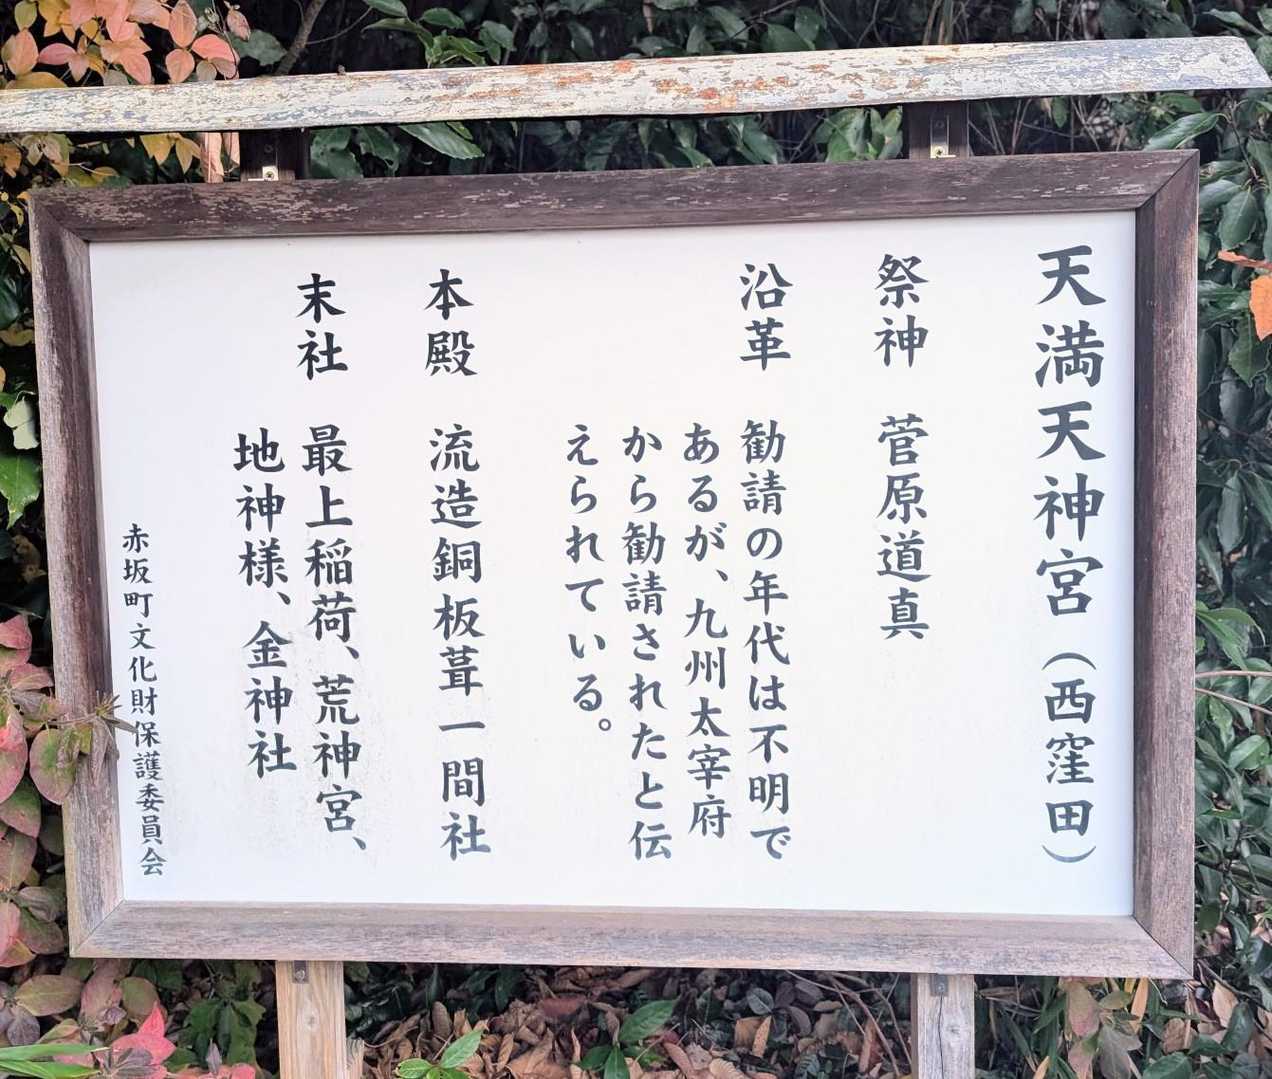 天満天神宮（西窪田）
祭神　菅原道真
沿革　勧請の年代は不明で
あるが、九州太宰府
から勧請されたと伝
えられている。
本殿　流造銅板葺一間社
末社　最上稲荷、荒神宮、
地神様、金神社
赤坂町文化財保護委員会